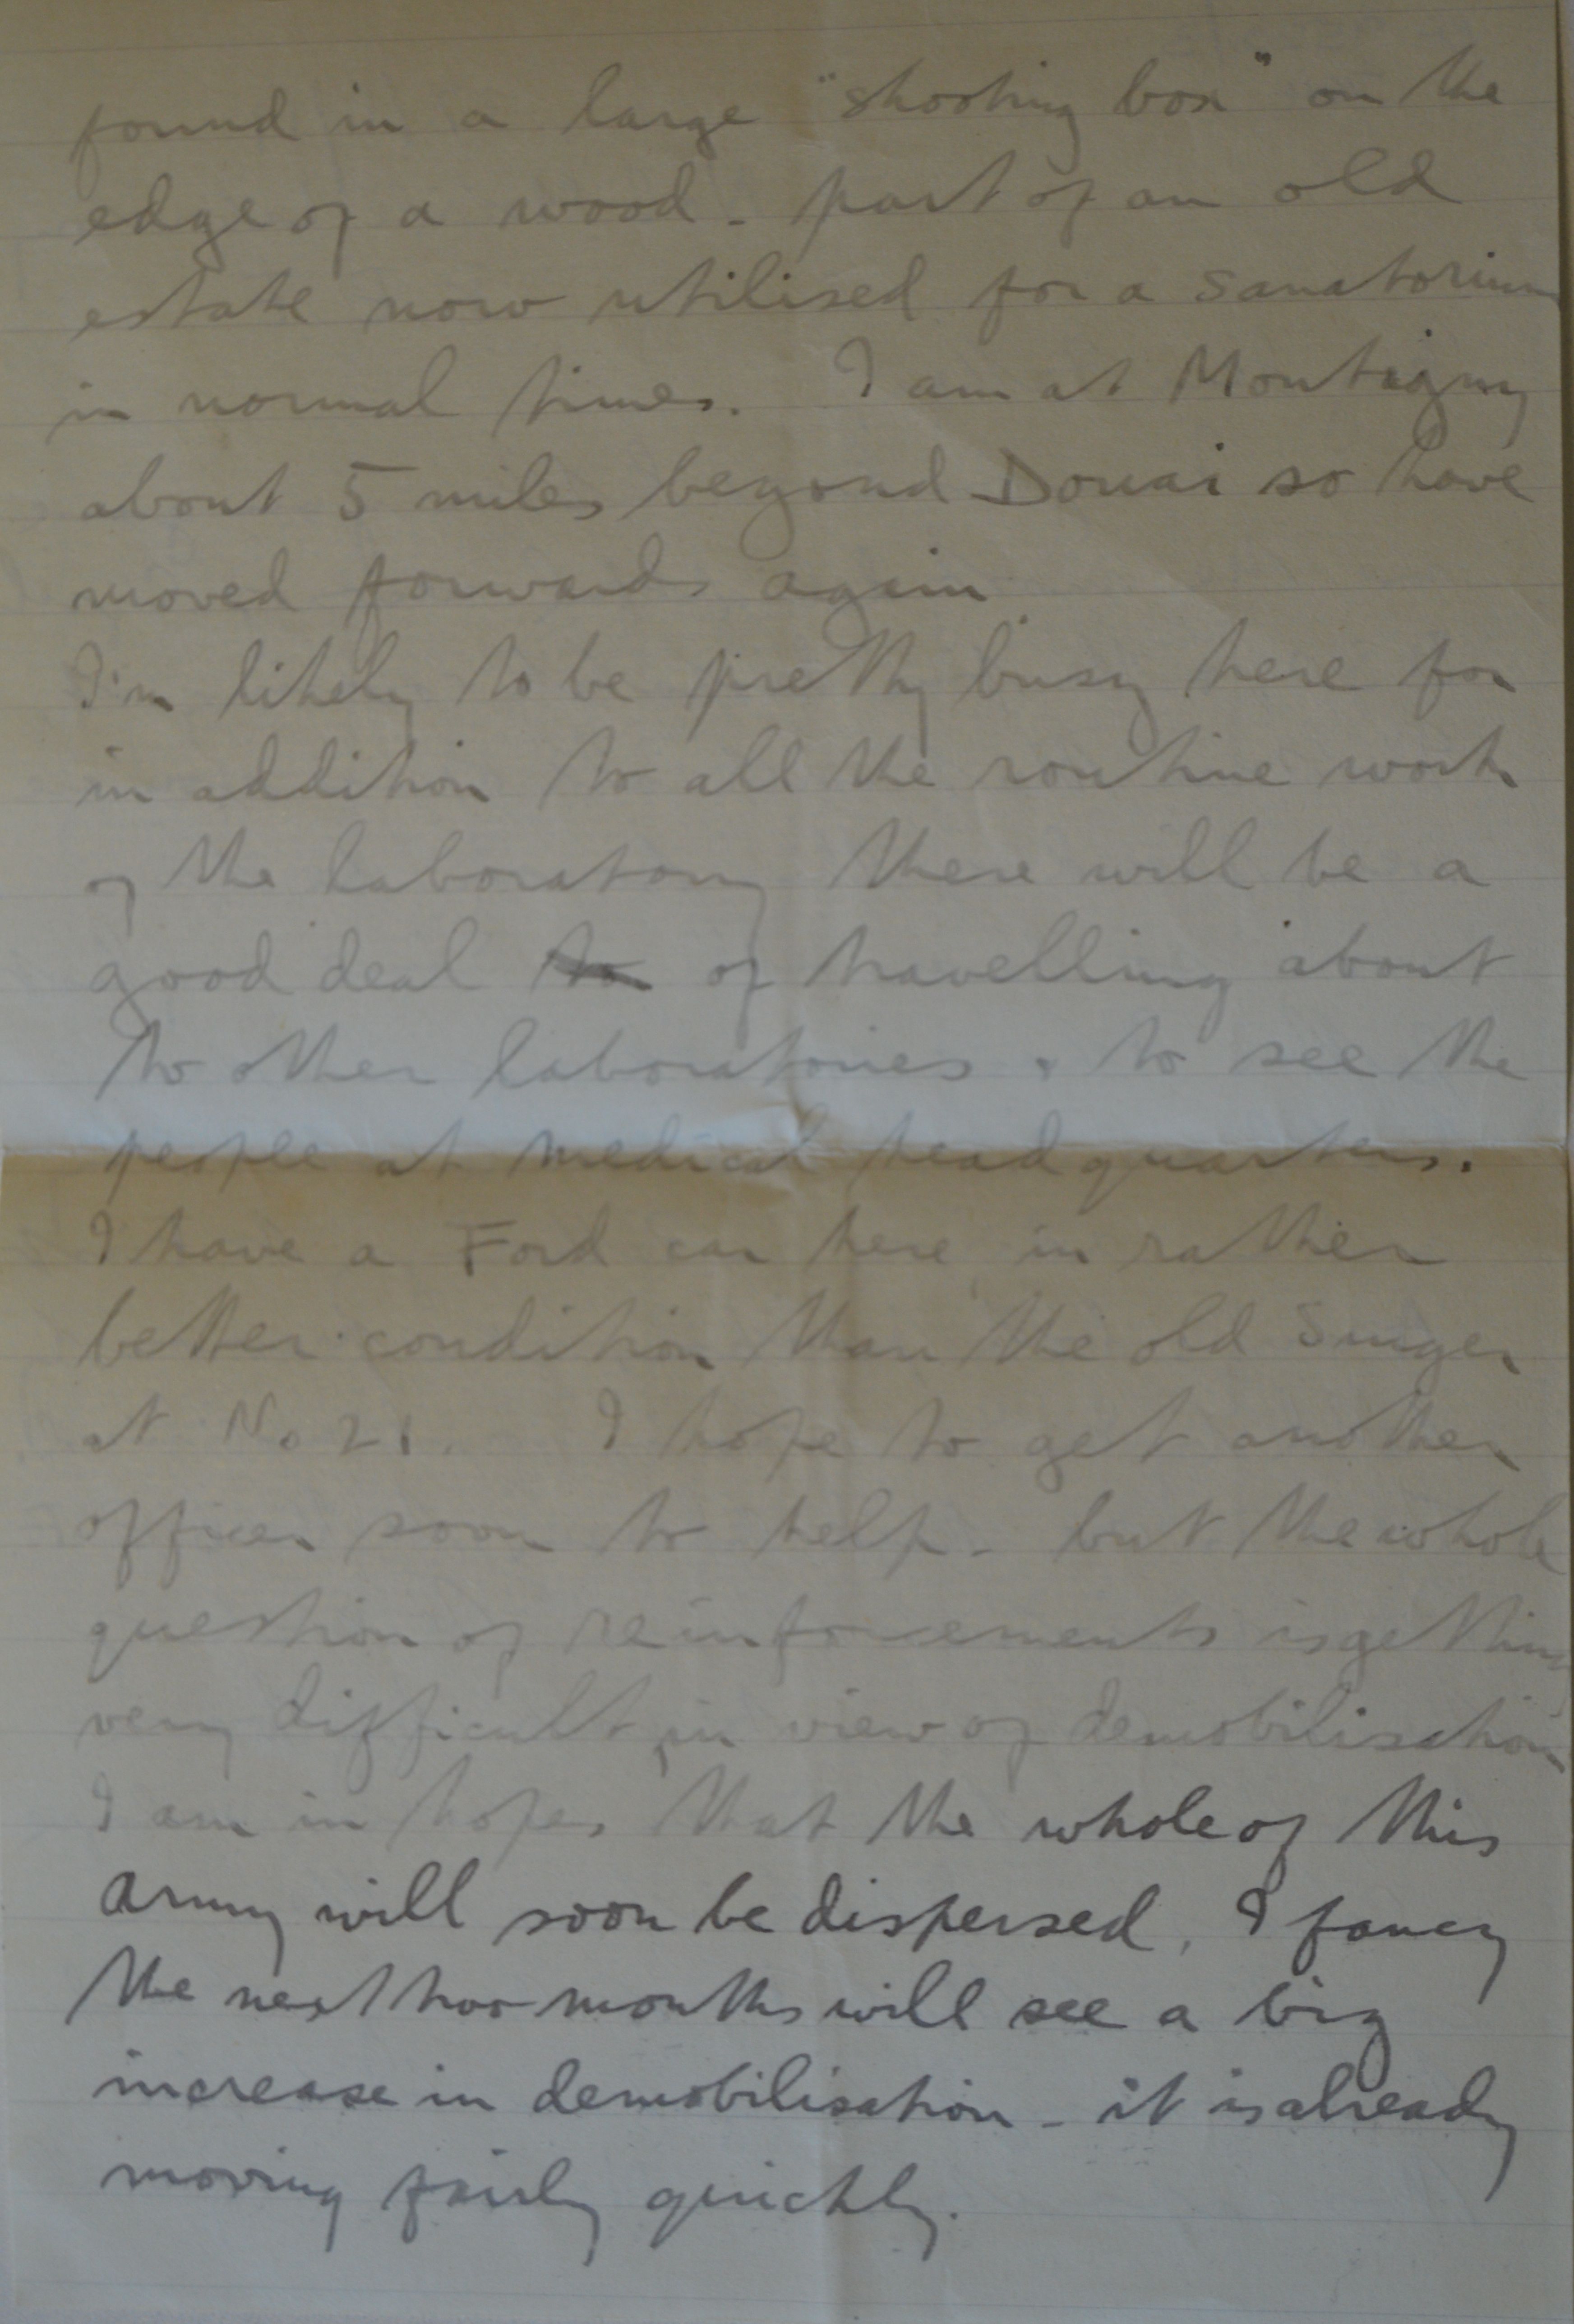 found in a large "shooting box" on the
edge of a wood - part of an old
estate now utilised for a sanatorium
in normal times. I am at Montigny
about 5 miles beyond Douai so have
moved forwards again.
I'm likely to be pretty busy here for
in addition to all the routine work
of the laboratory there will be a
good deal to of travelling about
to other laboratories & to see the
people at medical headquarters.
I have a Ford car here, in rather
better condition than the old Singer
at No 21. I hope to get another
officer soon to help - but the whole
question of reinforcements is getting
very difficult, in view of demobilisation
I am in hopes that the whole of this
army will soon be dispersed, I fancy
the next two months will see a big
increase in demobilisation - it is already
moving fairly quickly.